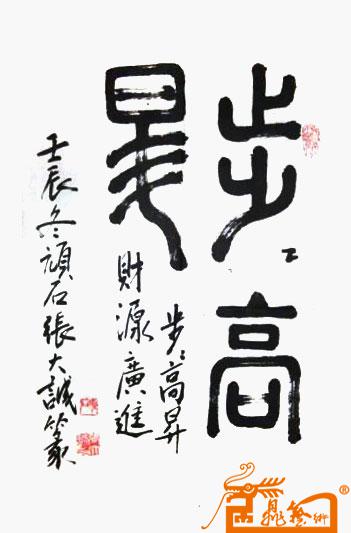 步々高
昇
步々高昇
財源廣進
壬辰冬頑石張大誠篆